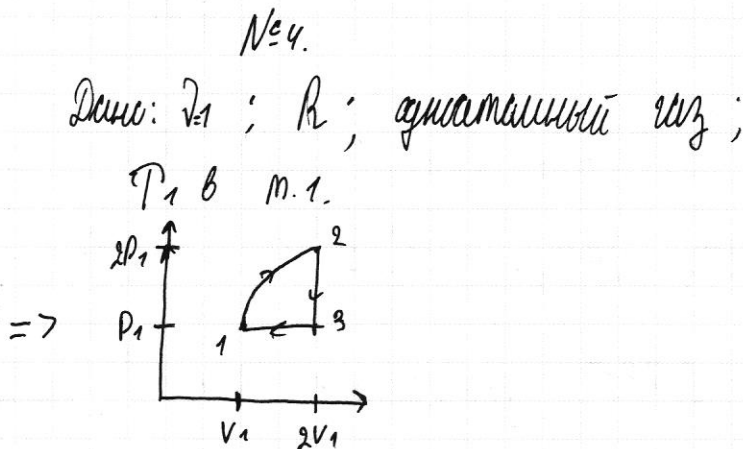 №4.
Дано: ν=1 ; R ; одноатомный газ ;
T₁ в т.1.
2P₁
2
=>
P₁
1
3
V₁ 2V₁